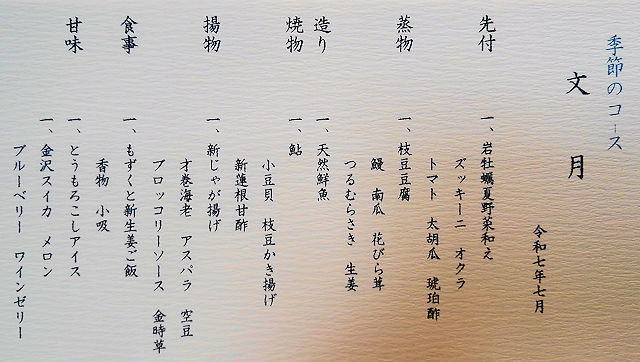 季節のコース
文月
令和七年七月
先付
一、岩牡蠣夏野菜和え
ズッキーニ オクラ
トマト 太胡瓜 琥珀酢
蒸物
一、枝豆豆腐
鰻 南瓜 花びら茸
つるむらさき 生姜
造り
一、天然鮮魚
焼物
一、鮎
小豆貝 枝豆かき揚げ
新蓮根甘酢
揚物
一、新じゃが揚げ
才巻海老 アスパラ 空豆
ブロッコリーソース 金時草
食事
一、もずくと新生姜ご飯
香物 小吸
甘味
一、とうもろこしアイス
一、金沢スイカ メロン
ブルーベリー ワインゼリー